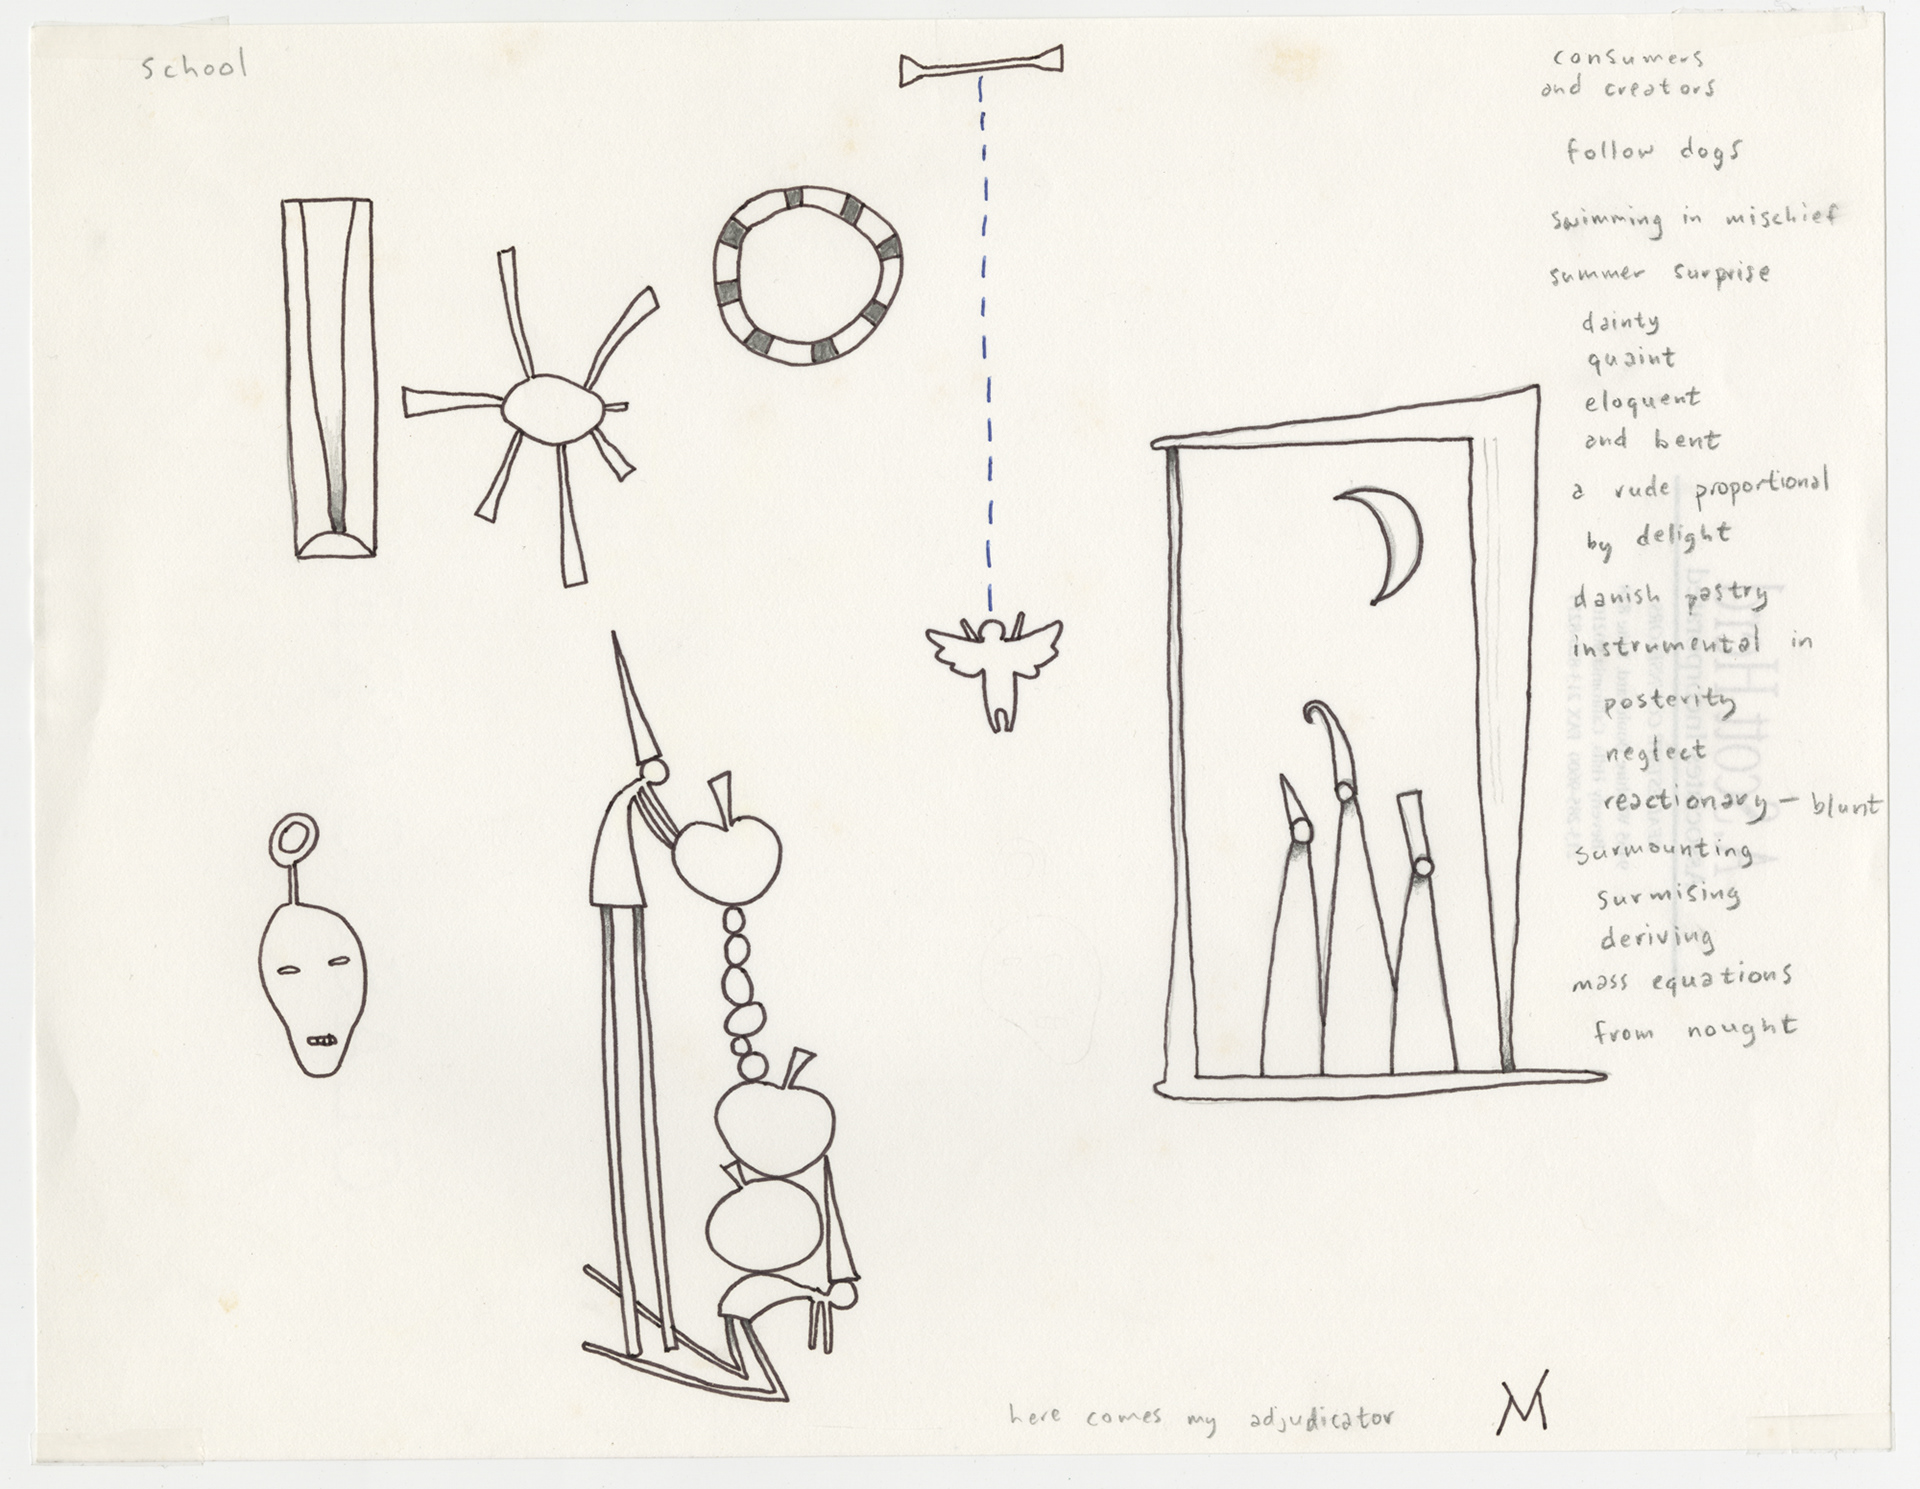 school
consumers
and creators
follow dogs
swimming in mischief
summer surprise
dainty
quaint
eloquent
and bent
a rude proportional
by delight
danish pastry
instrumental in
posterity
neglect
reactionary – blunt
surmounting
surmising
deriving
mass equations
from nought
here comes my adjudicator
M